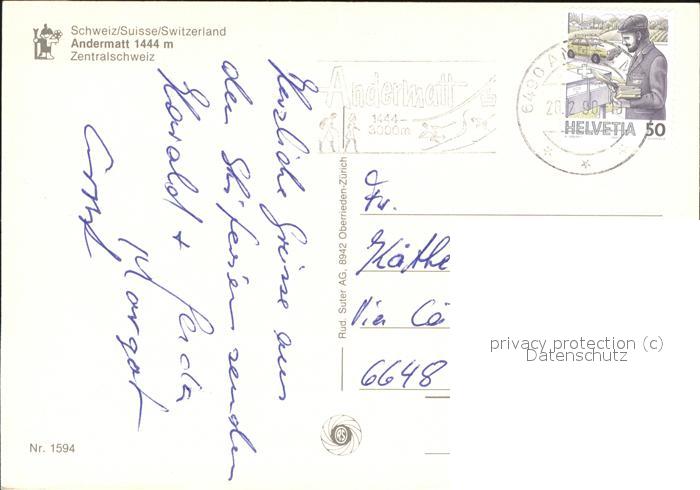 Schweiz/Suisse/Switzerland
Andermatt 1444 m
Zentralschweiz
Herzliche Grüsse aus
den Skiferien senden
Harald + Gerda
Margot
Nr. 1594
Rud. Suter AG, 8942 Oberrieden-Zürich
RS
Andermatt
1444-
3000m
6490 AN
20.2.90-18
HELVETIA 50
Fr.
Käthe
Via Cä
6648
privacy protection (c)
Datenschutz